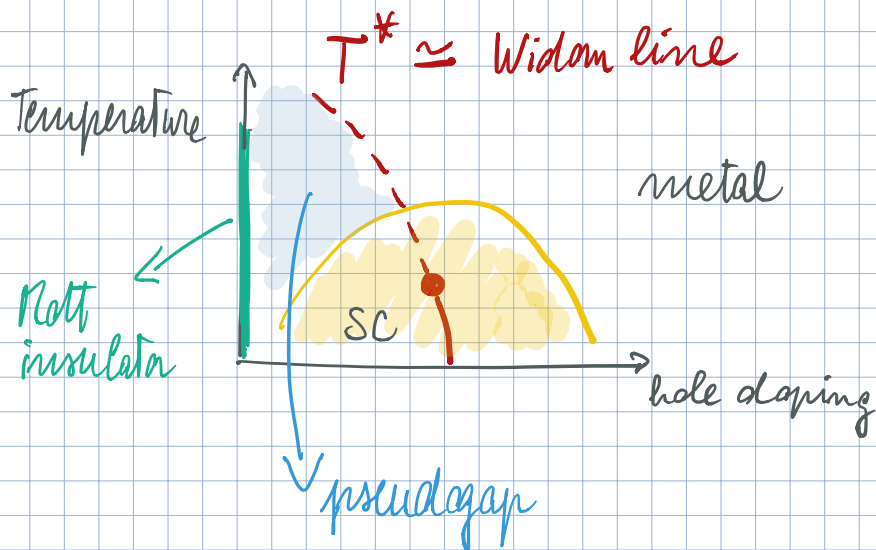 T* ≃ Widom line
Temperature
metal
Mott
insulator
SC
hole doping
pseudogap